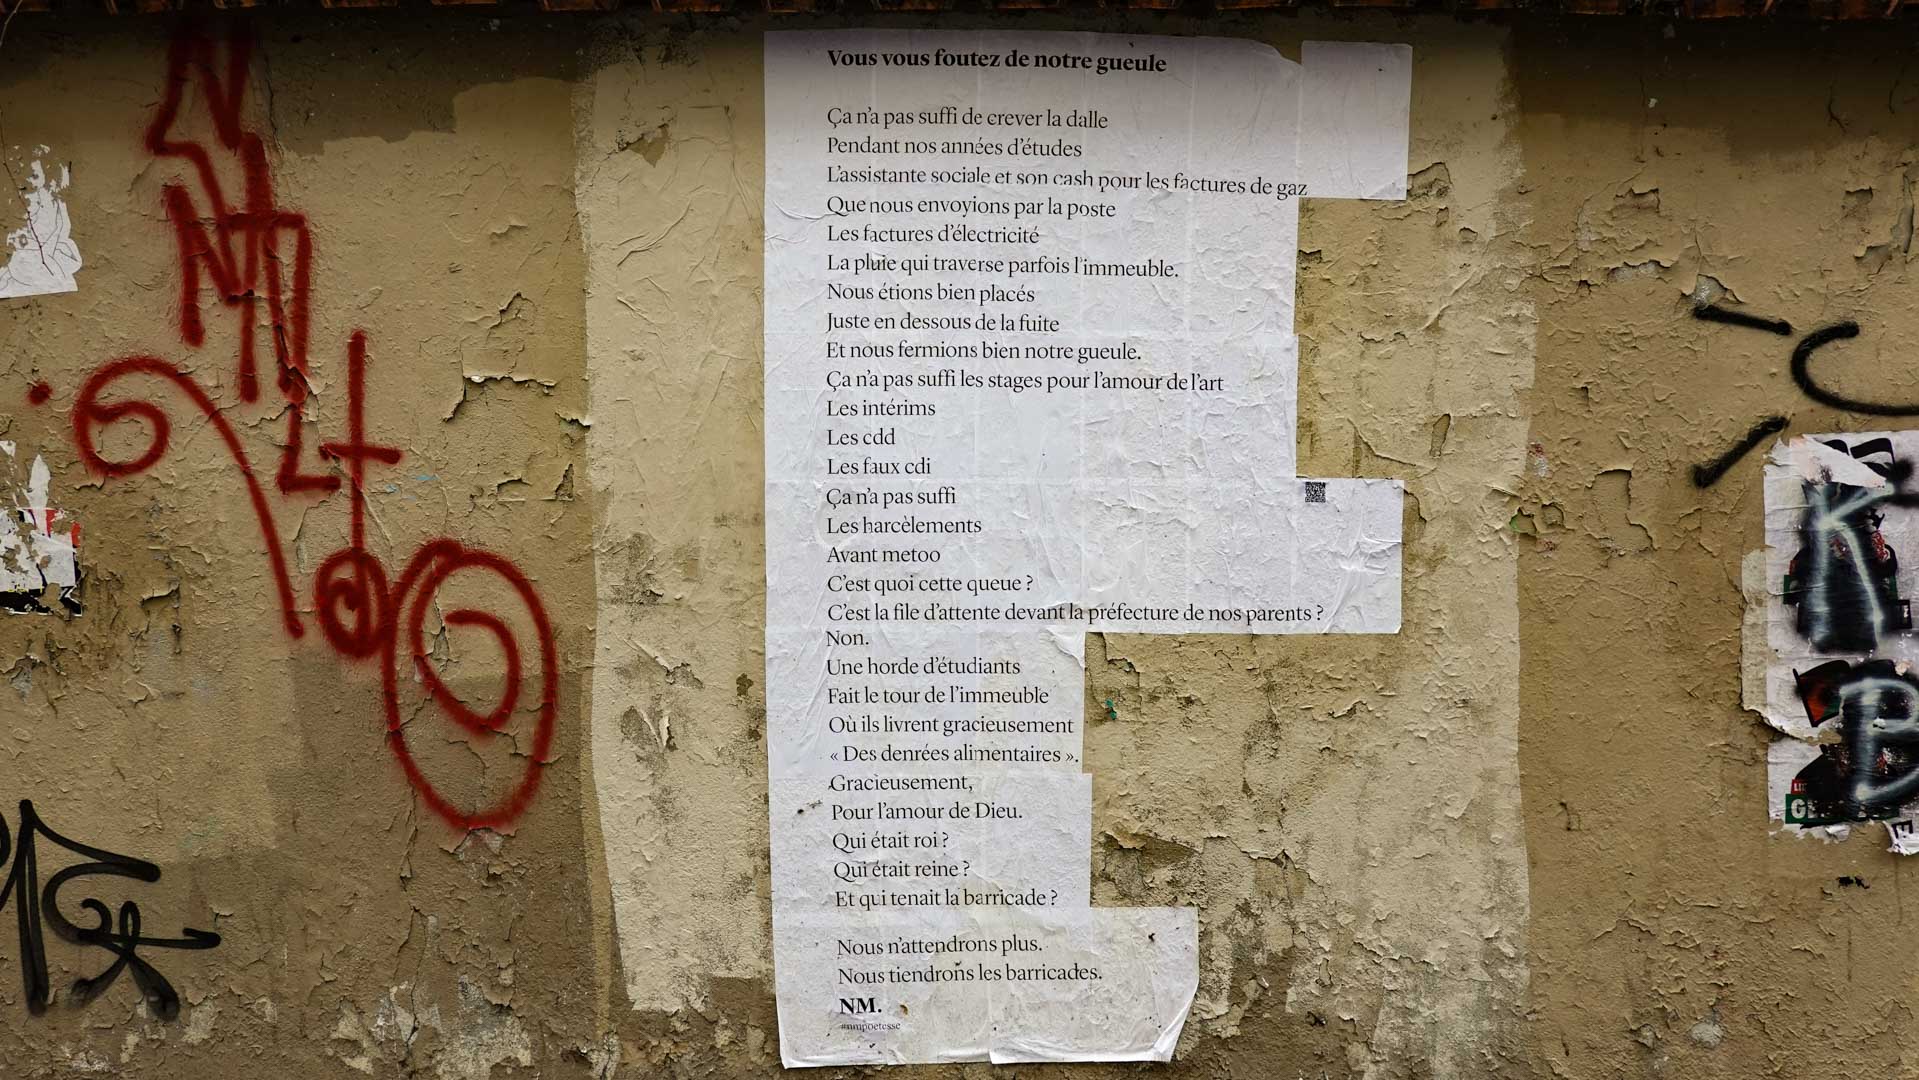 Vous vous foutez de notre gueule
Ça n'a pas suffi de crever la dalle
Pendant nos années d'études
L'assistante sociale et son cash pour les factures de gaz
Que nous envoyions par la poste
Les factures d'électricité
La pluie qui traverse parfois l'immeuble.
Nous étions bien placés
Juste en dessous de la fuite
Et nous fermions bien notre gueule.
Ça n'a pas suffi les stages pour l'amour de l'art
Les intérims
Les cdd
Les faux cdi
Ça n'a pas suffi
Les harcèlements
Avant metoo
C'est quoi cette queue ?
C'est la file d'attente devant la préfecture de nos parents ?
Non.
Une horde d'étudiants
Fait le tour de l'immeuble
Où ils livrent gracieusement
« Des denrées alimentaires ».
Gracieusement,
Pour l'amour de Dieu.
Qui était roi ?
Qui était reine ?
Et qui tenait la barricade ?
Nous n'attendrons plus.
Nous tiendrons les barricades.
NM.
#nmpoetesse
K
B